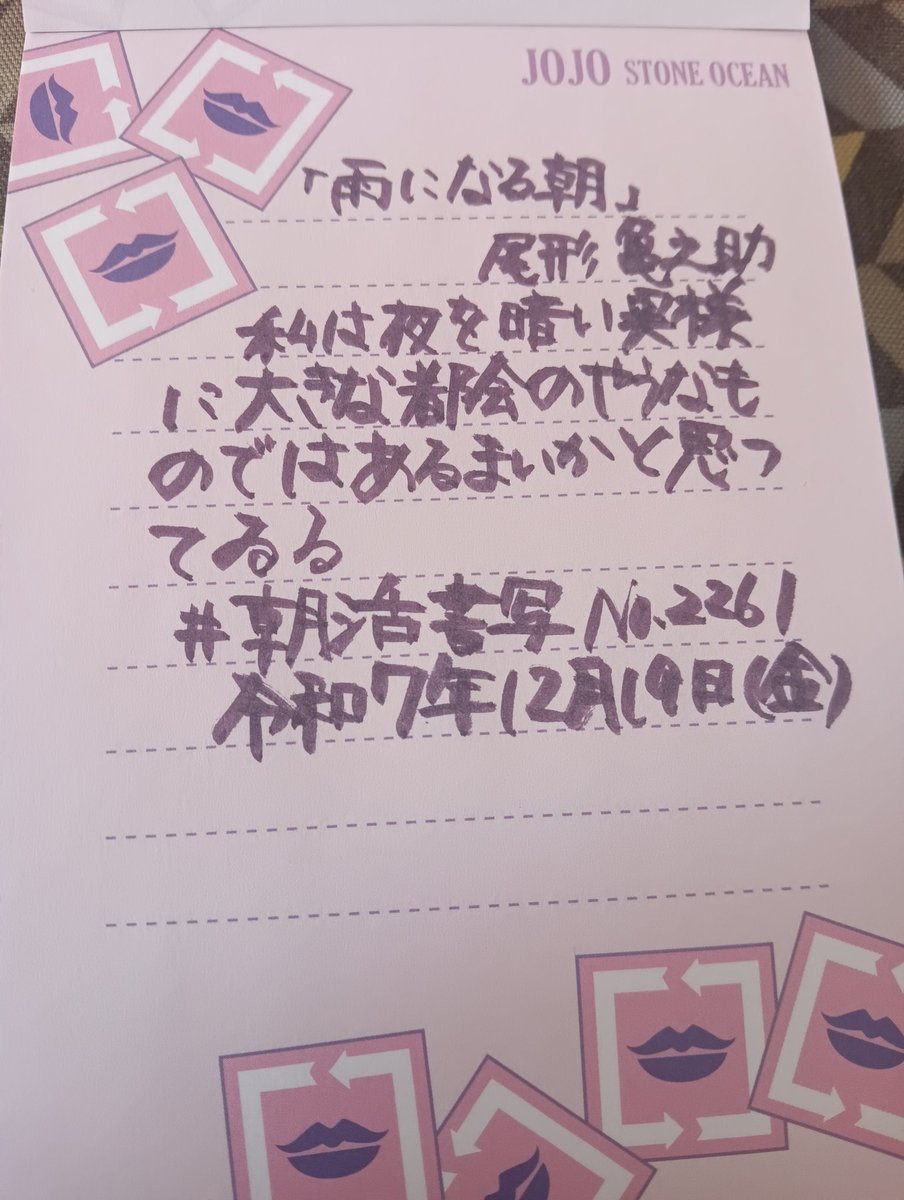 JOJO STONE OCEAN
「雨になる朝」
尾形亀之助
私は夜を暗い異様
に大きな都会のやうなも
のではあるまいかと思つ
てゐる
#朝活書写 No.2261
令和7年12月19日(金)